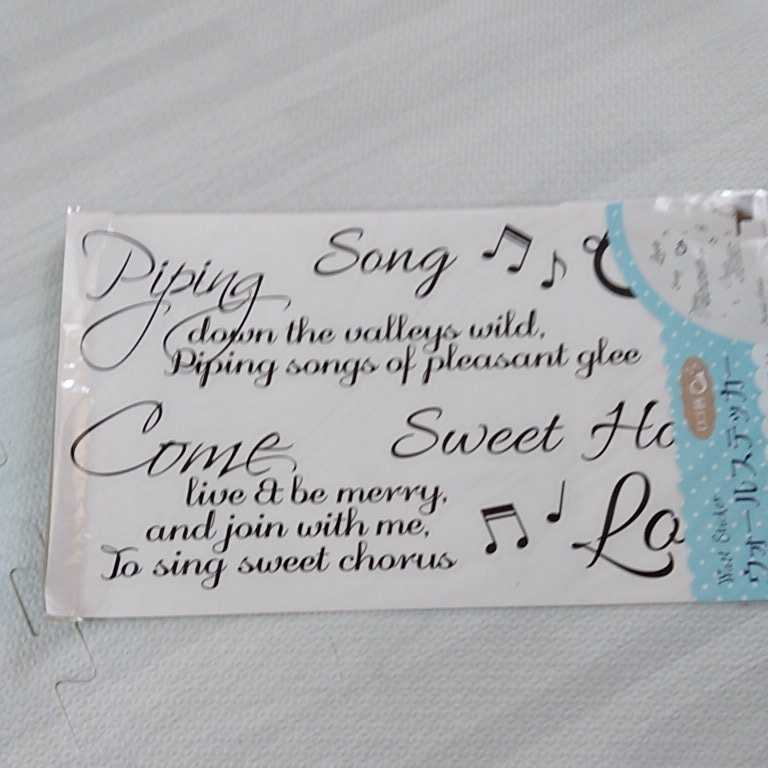 Piping Song
down the valleys wild,
Piping songs of pleasant glee
Come Sweet Ho
live & be merry,
and join with me,
To sing sweet chorus
Lo
Wall Sticker
ウォールステッカー